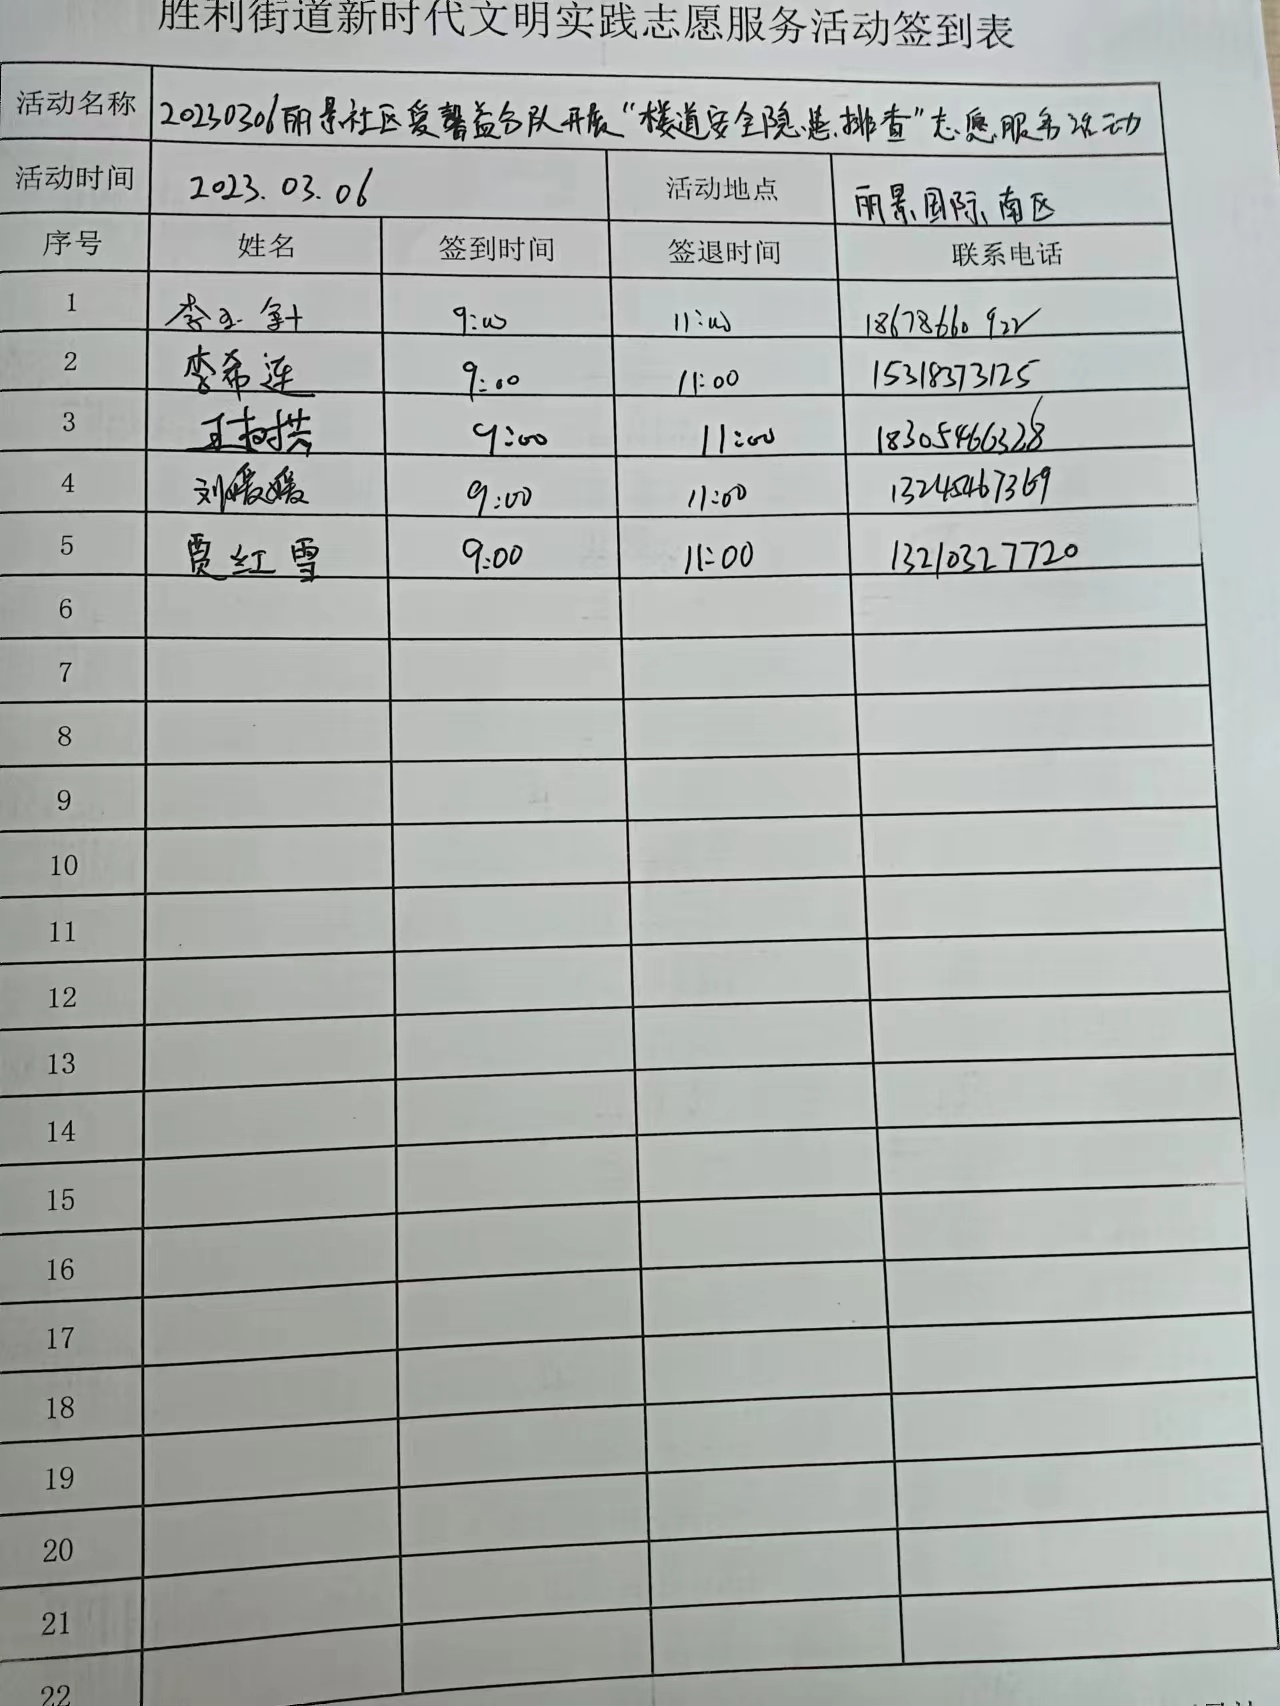 胜利街道新时代文明实践志愿服务活动签到表
活动名称 20230306丽景社区爱馨益台队开展“楼道安全隐患排查”志愿服务活动
活动时间 2023.03.06 活动地点 丽景国际南区
序号 姓名 签到时间 签退时间 联系电话
1 李玉 9:00 11:00 18678660922
2 李希连 9:00 11:00 15318373125
3 王树 9:00 11:00 18305466328
4 刘媛媛 9:00 11:00 13245467369
5 贾红雪 9:00 11:00 13210327720
6
7
8
9
10
11
12
13
14
15
16
17
18
19
20
21
22